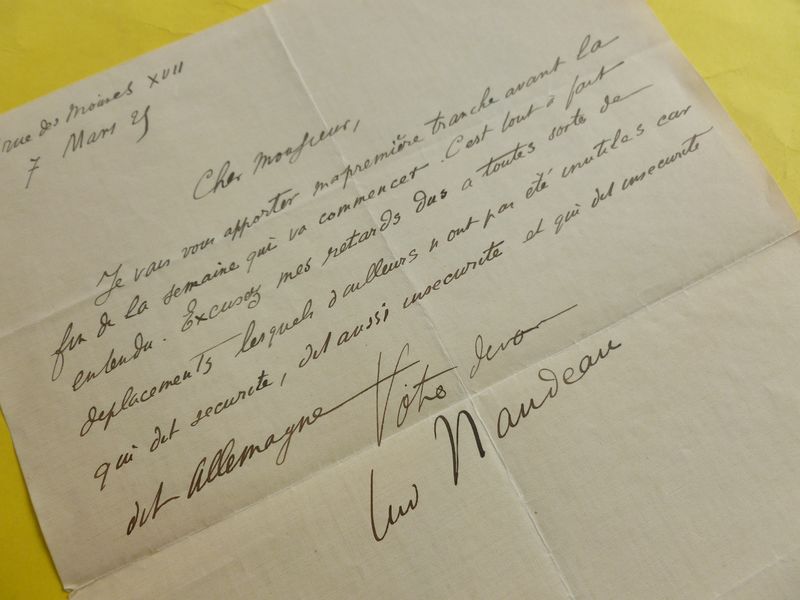 rue des Moines XVII
7 Mars 25
Cher Monsieur,
Je vais vous apporter ma première tranche avant la
fin de la semaine qui va commencer. C'est tout à fait
entendu. Excusez mes retards dus a toutes sorte de
deplacements lesquels d'ailleurs n'ont pas été inutiles car
qui dit securite, dit aussi insecurite et qui dit insecurite
dit Allemagne Votre devo
Naudeau